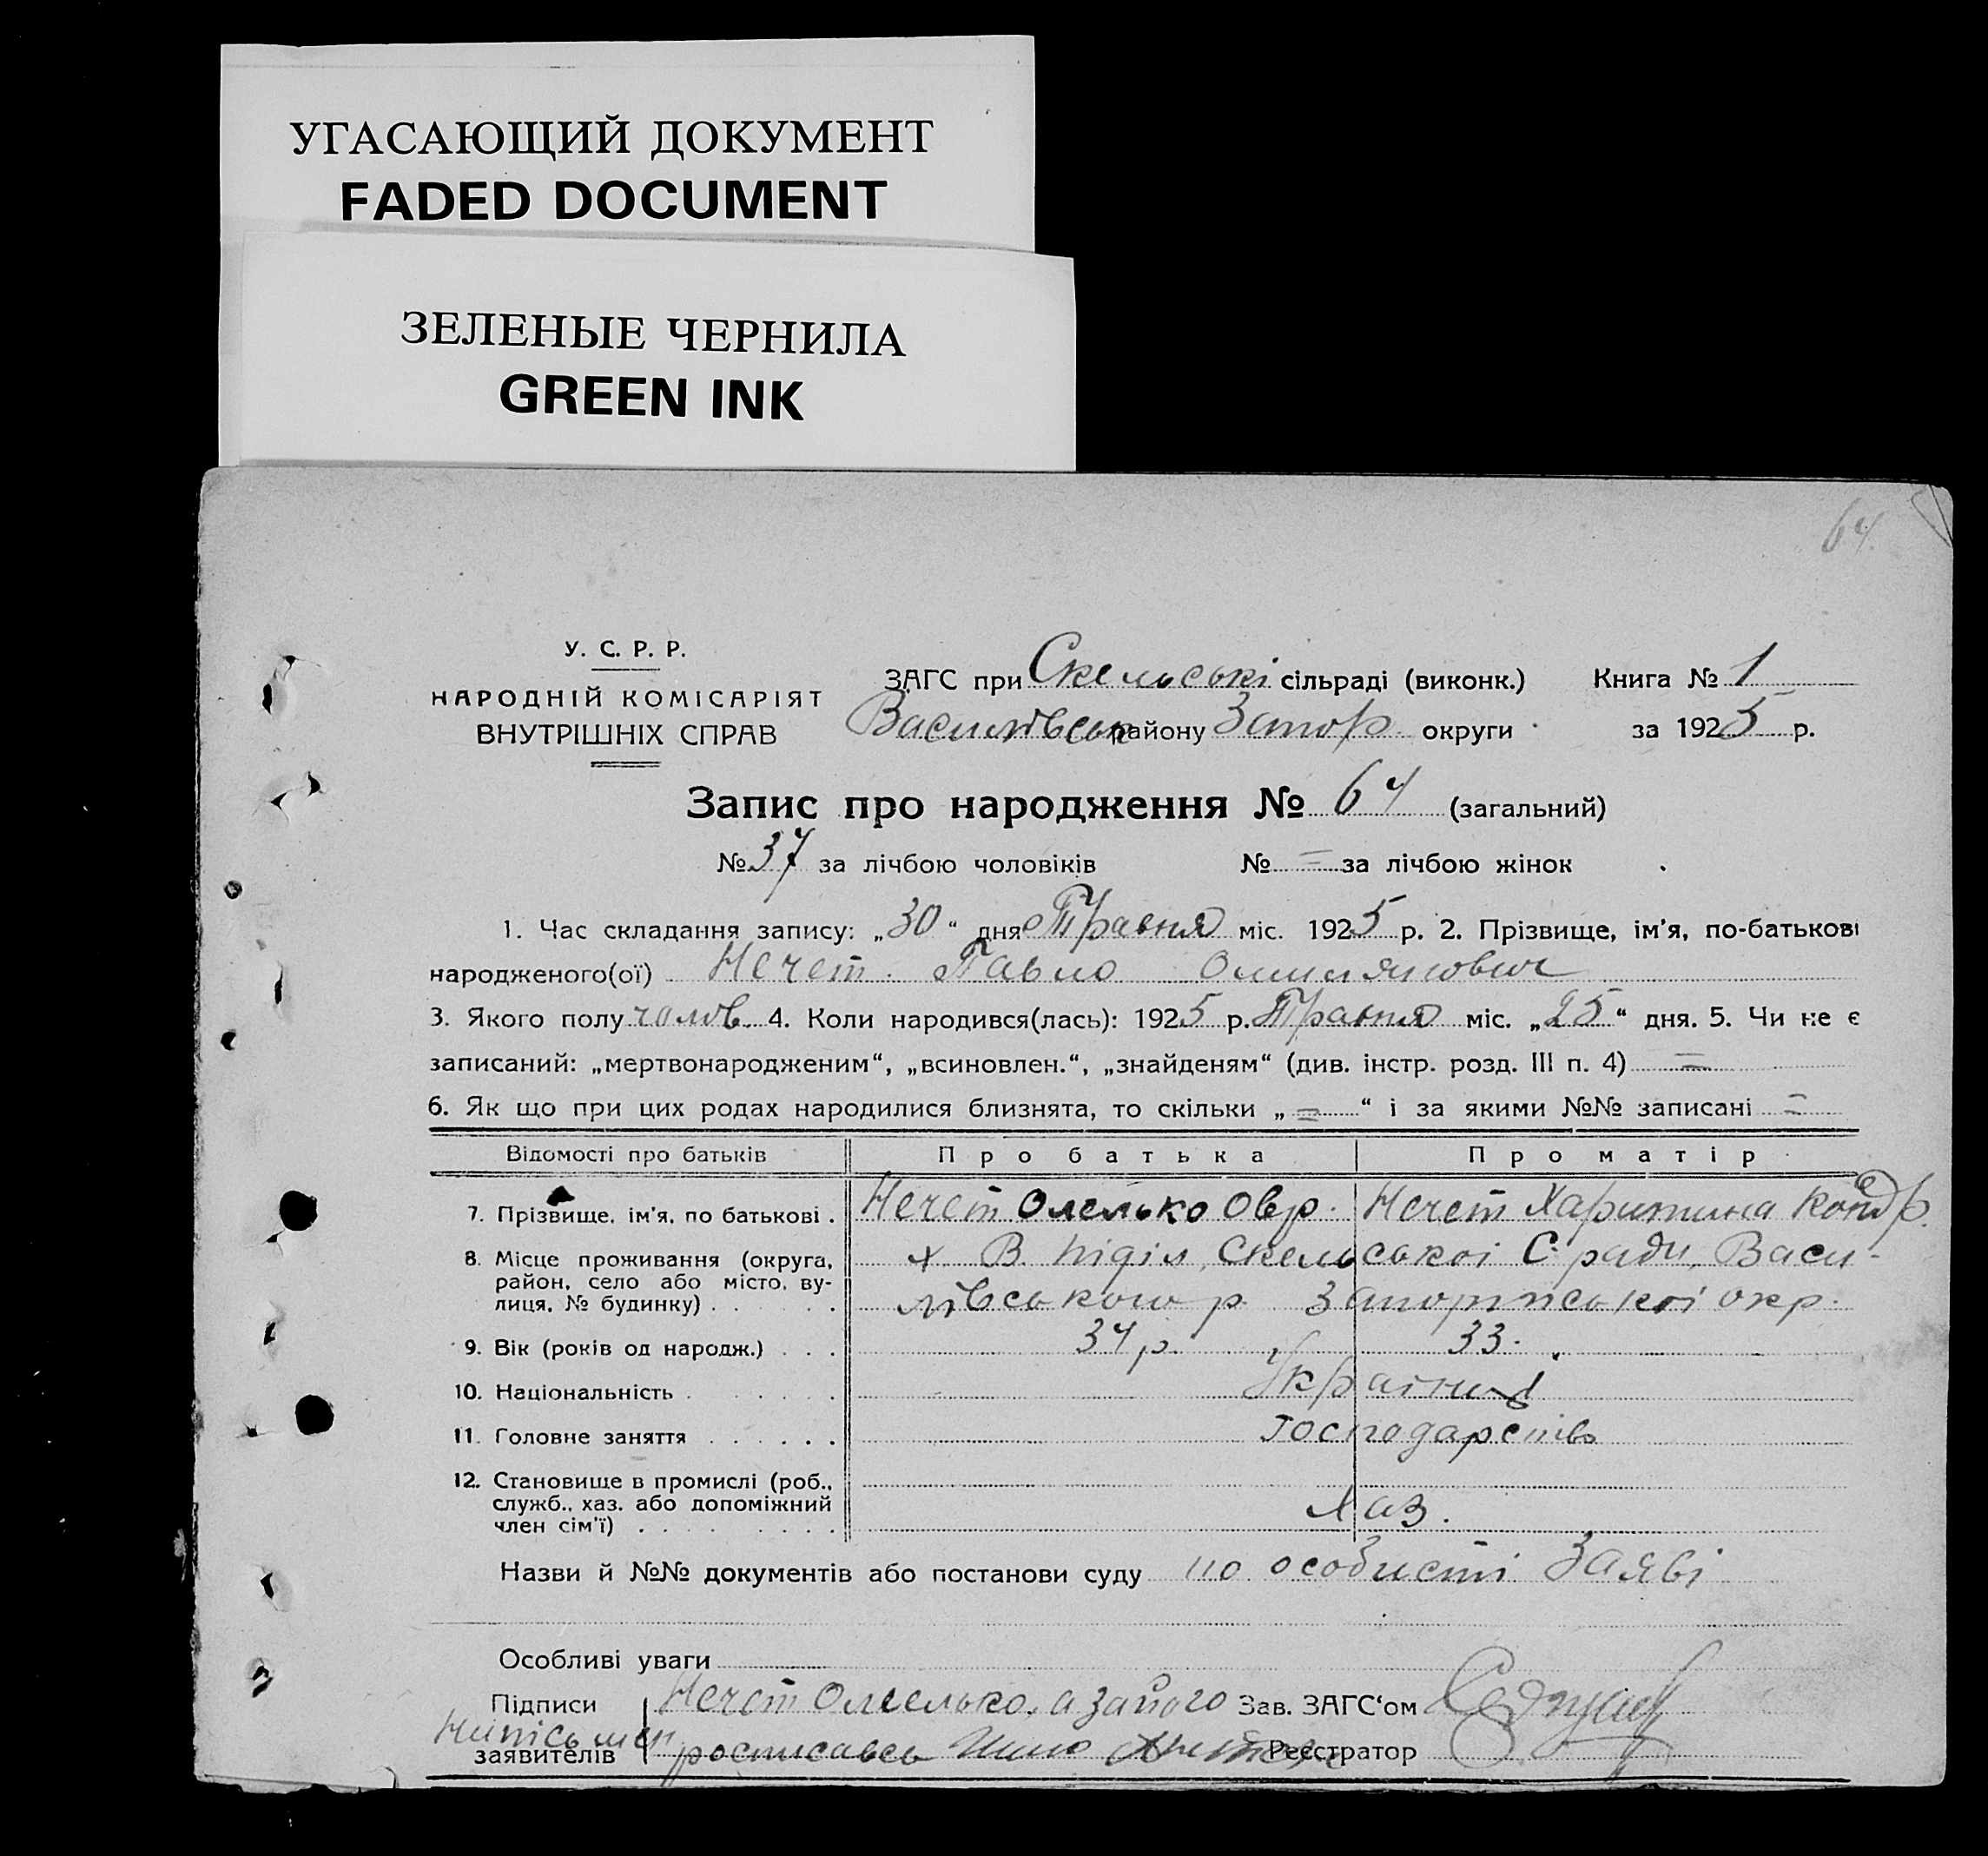 УГАСАЮЩИЙ ДОКУМЕНТ
FADED DOCUMENT
ЗЕЛЕНЫЕ ЧЕРНИЛА
GREEN INK
64.
У. С. Р. Р.
НАРОДНІЙ КОМІСАРІЯТ
ВНУТРІШНІХ СПРАВ
ЗАГС при Скельські сільраді (виконк.) Книга № 1
Василівськ району Запор. округи за 1925 р.
Запис про народження № 64 (загальний)
№ 37 за лічбою чоловіків № = за лічбою жінок
1. Час складання запису: „30“ дня Травня міс. 1925 р. 2. Прізвище, ім'я, по-батькові
народженого(ої) Нечет Павло
3. Якого полу чолов. 4. Коли народився(лась): 1925 р. Травня міс. „25“ дня. 5. Чи не є
записаний: „мертвонародженим“, „всиновлен.“, „знайденям“ (див. інстр. розд. III п. 4) =
6. Як що при цих родах народилися близнята, то скільки „=“ і за якими №№ записані =
Відомості про батьків Про батька Про матір
7. Прізвище, ім'я, по батькові . Нечет Олелько Овр. Нечет Харитина Кондр.
8. Місце проживання (округа, х В. Поділ, Скельської С. ради, Васи-
район, село або місто, ву-
лиця, № будинку) . . . . лівського р. Запорізської окр.
9. Вік (років од народж.) . . . 34 р. 33.
10. Національність . . . . . Україн
11. Головне заняття . . . . . . Господарство
12. Становище в промислі (роб.,
служб., хаз. або допоміжний Хаз.
член сім'ї) . . . . . . . .
Назви й №№ документів або постанови суду по особисті Заяві
Особливі уваги
Підписи Нечет Олелько, а за його Зав. ЗАГС'ом
Нипісьмен
заявителів росписавсь Реєстратор